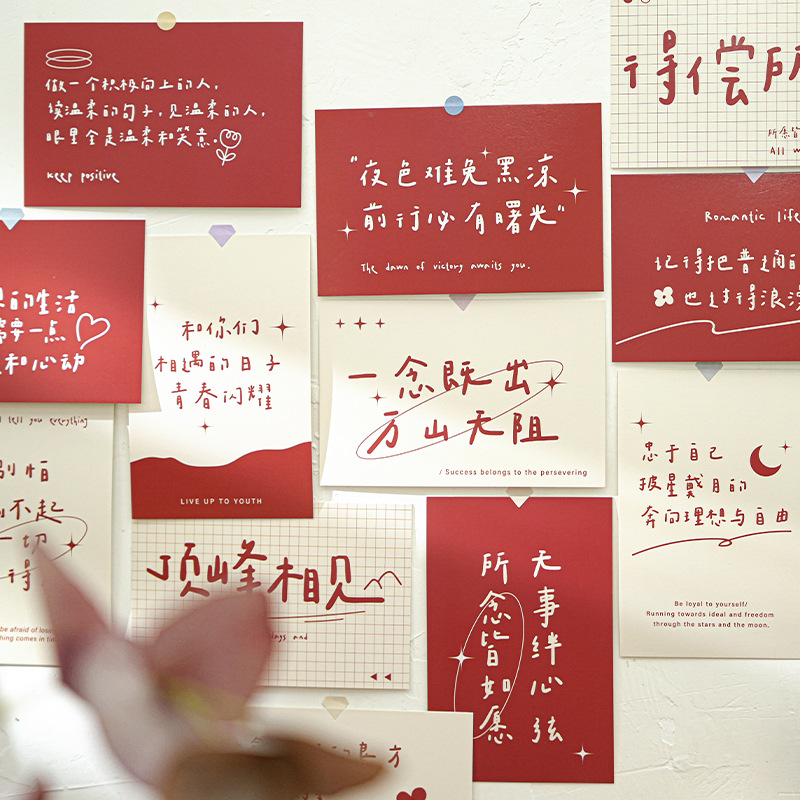 做一个积极向上的人,
读温柔的句子,见温柔的人,
眼里全是温柔和笑意.
keep positive
"夜色难免黑凉
前行必有曙光"
The dawn of victory awaits you.
得偿所
所念皆
All w
Romantic life
记得把普通的
也过得浪漫
的生活
需要一点
和心动
和你们
相遇的日子
青春闪耀
LIVE UP TO YOUTH
一念既出
万山无阻
/ Success belongs to the persevering
忠于自己
披星戴月的
奔向理想与自由
Be loyal to yourself/
Running towards ideal and freedom
through the stars and the moon.
tell you everything
别怕
不起
一切
得
be afraid of losin
thing comes in tim
顶峰相见
and
无事绊心弦
所念皆如愿
方